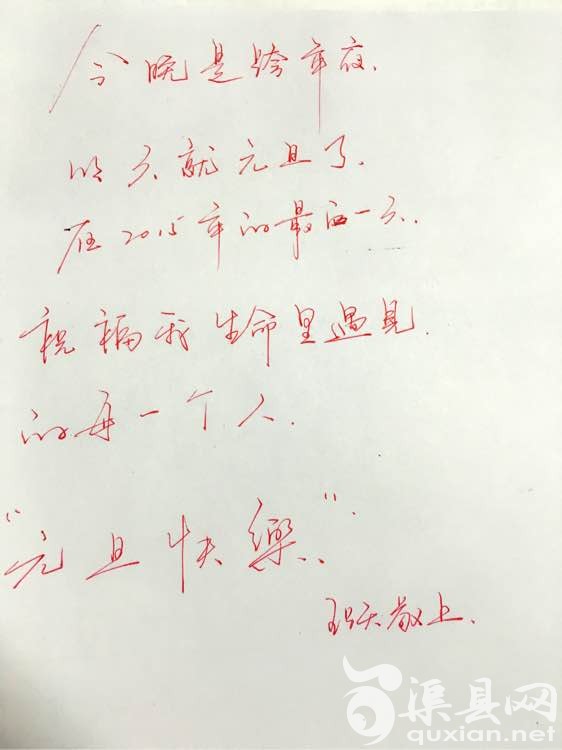 今晚是跨年夜.
明天就元旦了.
在2015年的最后一天.
祝福我生命里遇见.
的每一个人.
“元旦快樂.”
敬上.
渠县网
quxian.net